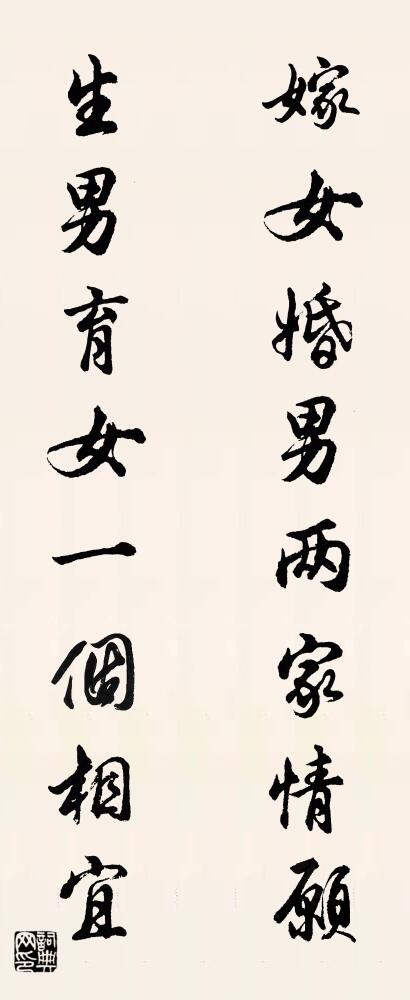 嫁女婚男两家情願
生男育女一個相宜
詞典网印